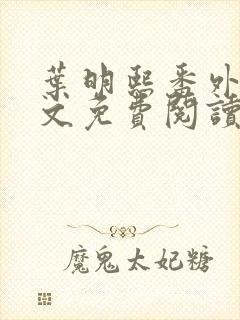 葉明熙番外
文免費閱讀
魔鬼太妃糖